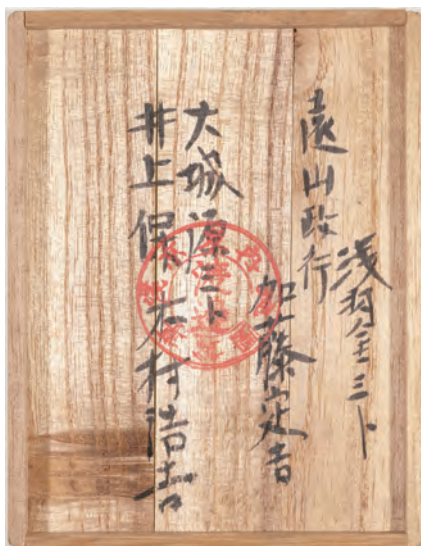 遠山政行
浅羽金三ト
加藤定吉
大城源三ト
井上保
木村浩吉